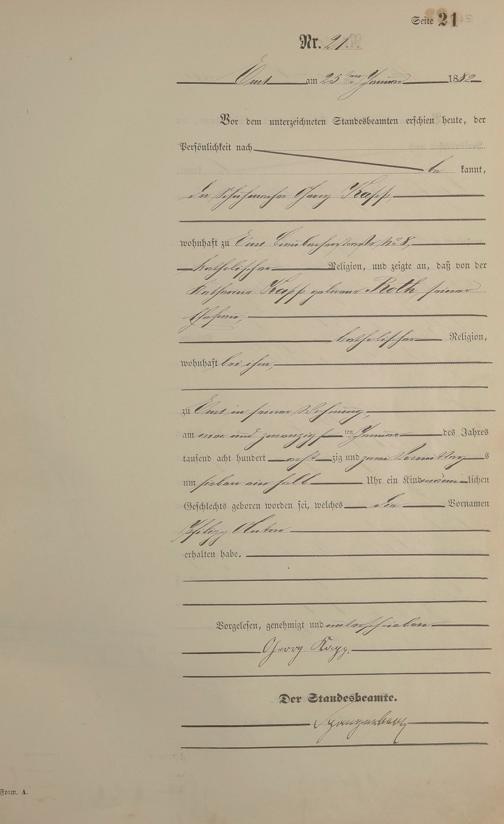 Seite 21
Nr. 21.
Ems am 25 ten Januar 1882
Vor dem unterzeichneten Standesbeamten erschien heute, der
Persönlichkeit nach
be kannt,
der Schuhmacher Georg Kapp
wohnhaft zu Ems No 8,
katholischer Religion, und zeigte an, daß von der
Katharina Kapp geborene Roth seiner
Ehefrau,
katholischer Religion,
wohnhaft bei ihm,
zu Ems in seiner Wohnung,
am und zwanzigsten Januar des Jahres
tausend acht hundert achtzig und zwei Vormittags
um sieben ein halb Uhr ein Kind männlichen
Geschlechts geboren worden sei, welches den Vornamen
Philipp Anton
erhalten habe.
Vorgelesen, genehmigt und unterschrieben
Georg Kapp.
Der Standesbeamte.
Form. A.